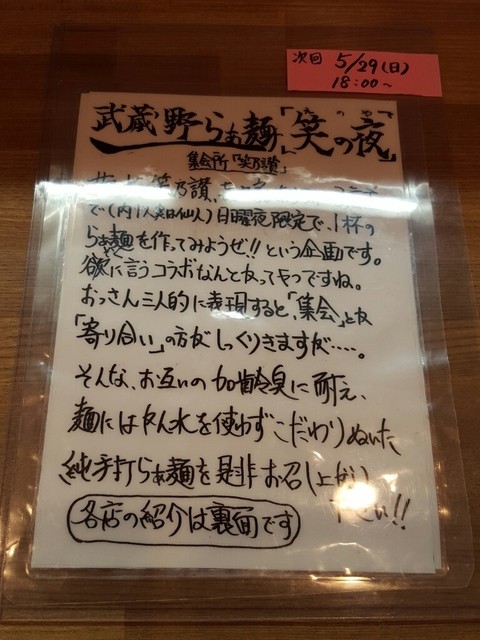 次回 5/29(日)
18:00〜
武蔵野らぁ麺「笑の夜」
集会所「笑乃讃」
笑乃讃、
で(内1人 仙人)日曜夜限定で、1杯の
らぁ麺を作ってみようぜ!!という企画です。
欲に言うコラボなんとかってやつですね。
おっさん三人的に表現すると、「集会」とか
「寄り合い」の方がしっくりきますが‥‥。
そんな、お互いの加齢臭に耐え、
麺にはかん水を使わずこだわりぬいた
純手打らぁ麺を是非お召し上がり
下さい!!
各店の紹介は裏面です